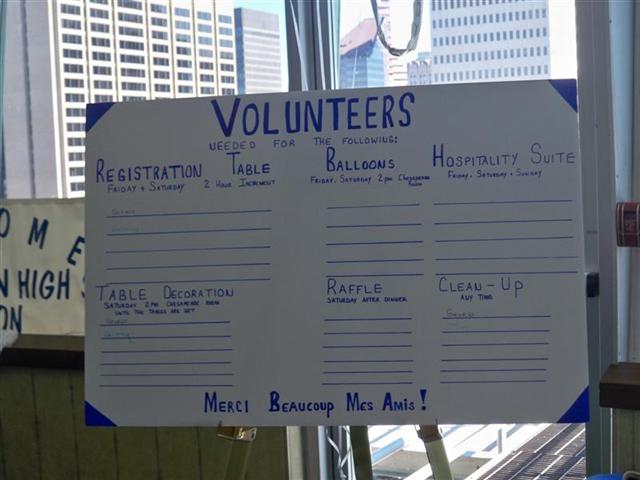 VOLUNTEERS
NEEDED FOR THE FOLLOWING:
REGISTRATION TABLE
FRIDAY + SATURDAY 2 HOUR INCREMENT
BALLOONS
FRIDAY, SATURDAY, 2PM CHESAPEAKE ROOM
HOSPITALITY SUITE
FRIDAY, SATURDAY + SUNDAY
TABLE DECORATION
SATURDAY 2 PM CHESAPEAKE ROOM
UNTIL THE TABLES ARE SET
RAFFLE
SATURDAY AFTER DINNER
CLEAN-UP
ANY TIME
MERCI BEAUCOUP MES AMIS!
OME
N HIGH S
ON